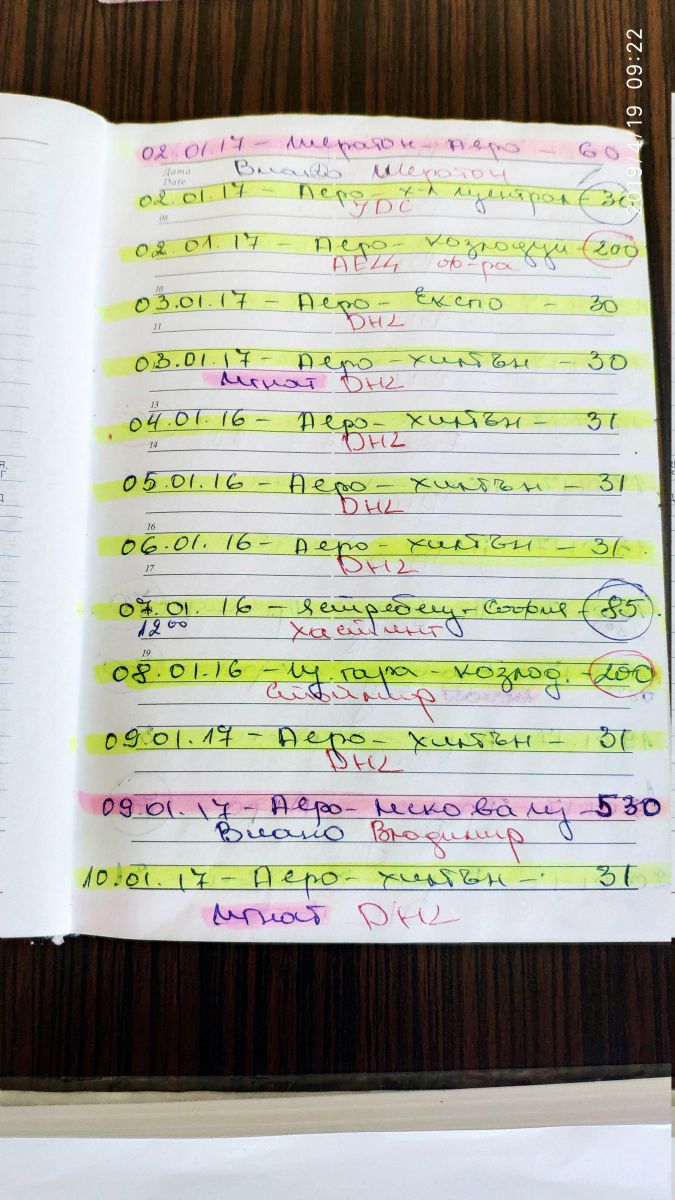 2019/4/19 09:22
02.01.17 - Шератон - Аеро - 60
Дата
Date
Виано Шератон
02.01.17 - Аеро - х-л Централ - 31
УДС
08
02.01.17 - Аеро - Козлодуй - 200
АЕЦ ф-ра
10
03.01.17 - Аеро - Експо - 30
11
DHL
03.01.17 - Аеро - хилтън - 30
Игнат DHL
13
04.01.16 - Аеро - хилтън - 31
14
DHL
05.01.16 - Аеро - хилтън - 31
DHL
16
06.01.16 - Аеро - хилтън - 31
17
DHL
07.01.16 - Ястребец - София - 85
12⁰⁰ хасиент
19
08.01.16 - Ц. гара - козлод. - 200
Стоимир
09.01.17 - Аеро - хилтън - 31
DHL
09.01.17 - Аеро - 530
Виано Владимир
10.01.17 - Аеро - хилтън - 31
Игнат DHL